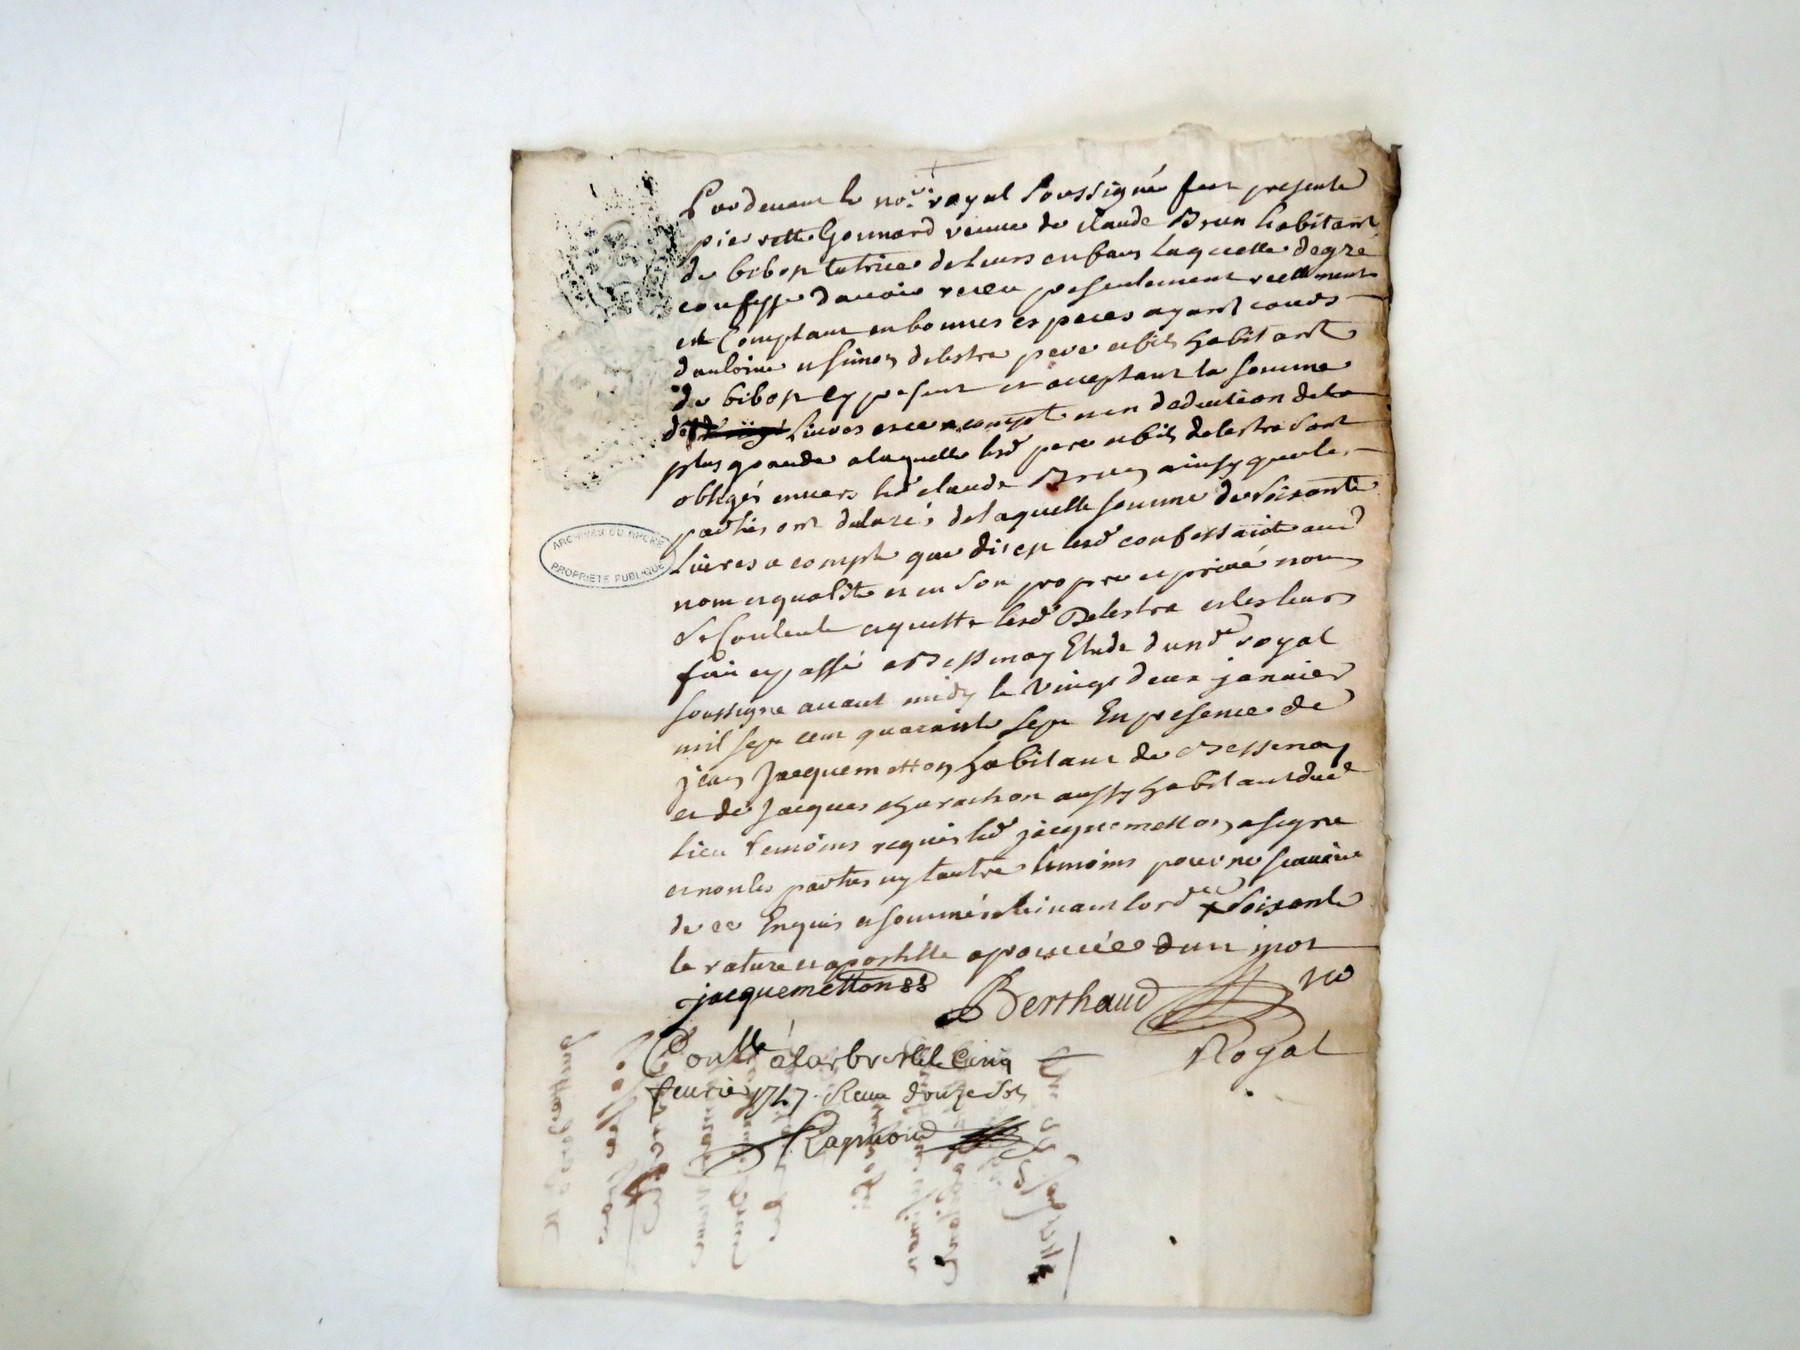 Pardevant le no.re royal soussigné fut presente
pierrette Gonnard veuve de claude Brun habitant
de bibost tutrice de leurs enfans laquelle de gré
confesse d'avoir receu presentement reellement
et Comptant en bonnes especes ayant cours
d'antoine et simon delestra pere et fils habitant
de bibost cy present et acceptant la somme
de livres et ce a compte et en deduction de la
plus grande a laquelle lesd pere et fils delestra sont
obligés envers led claude Brun ainsy que les
parties ont declarés de laquelle somme de soixante
livres a compte que dic en lesd confessante aud
nom et qualité et en son propre et privé nom
se Contente et quitte lesd Delestra et les leurs
fait et passé a Bessenay Etude dud no.re royal
soussigne avant midy le vingt deux janvier
mil sept cent quarante sept En presence de
jean Jacquemetton habitant de Bessenay
et de Jacques charachon aussy habitant dud
lieu temoins requis led jacquemetton a signe
et non les parties ny l'autre temoins pour ne scavoir
de ce Enquis et sommés suivant l'ord.ce x soixante
la rature et apostille aprouvée d'un mot
jacquemetton
Berthaud no
Royal
Con.llé a larbresle le Cinq
fevrier 1747. Receu douze sols
Raymond
ARCHIVES DU RHÔNE
PROPRIÉTÉ PUBLIQUE